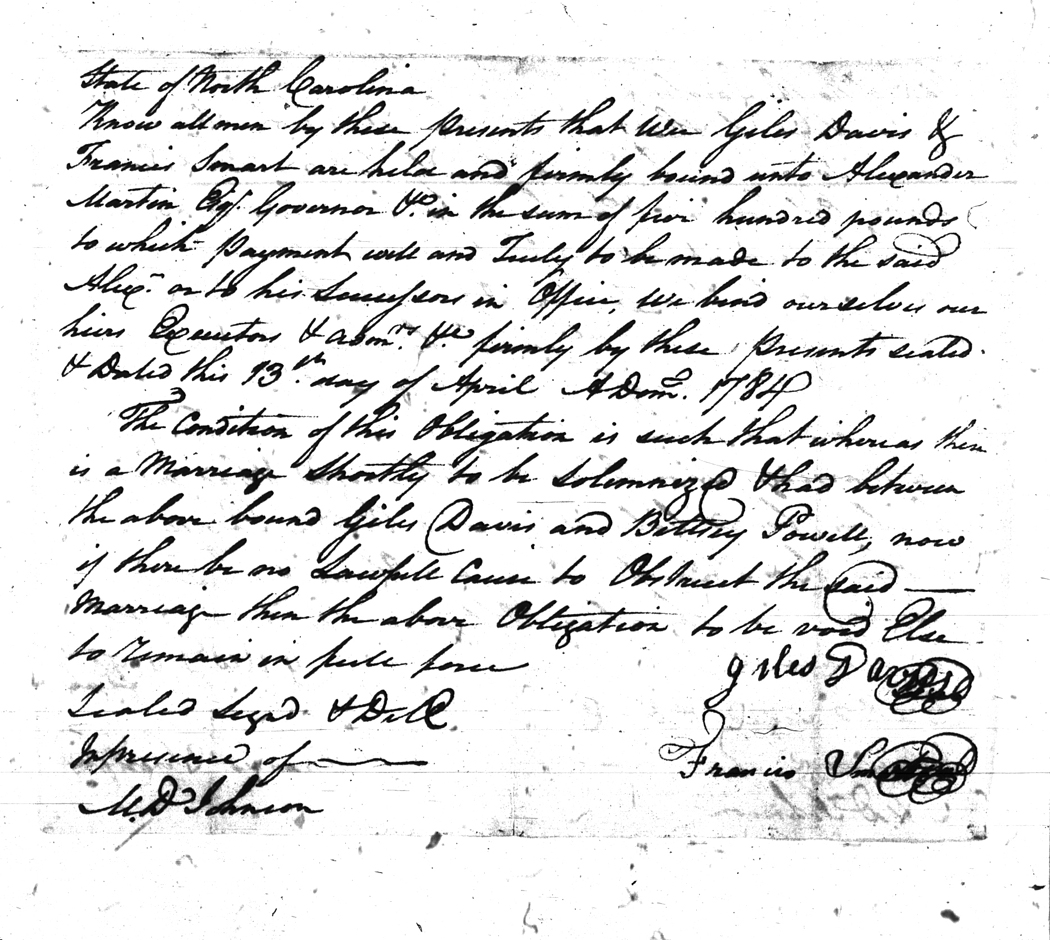 State of North Carolina
Know all men by these presents that We Giles Davis &
Francis Smart are held and firmly bound unto Alexander
Martin Esqr. Governor &c. in the sum of five hundred pounds
to which payment well and Truly to be made to the said
Alexr. or to his Successors in Office, We bind ourselves our
heirs Executors & admrs. &c firmly by these presents sealed
& Dated this 13th. day of April A Dom. 1784
The Condition of this Obligation is such that whereas their
is a Marriage Shortly to be Solemnized & had between
the above bound Giles Davis and Bettsey Powell, now
if there be no Lawfull Cause to Obstruct the said
Marriage then the above Obligation to be void Else
to Remain in full force
Giles Davis
Sealed Signd & Deld
In presence of
Francis Smart
M. D. Johnson